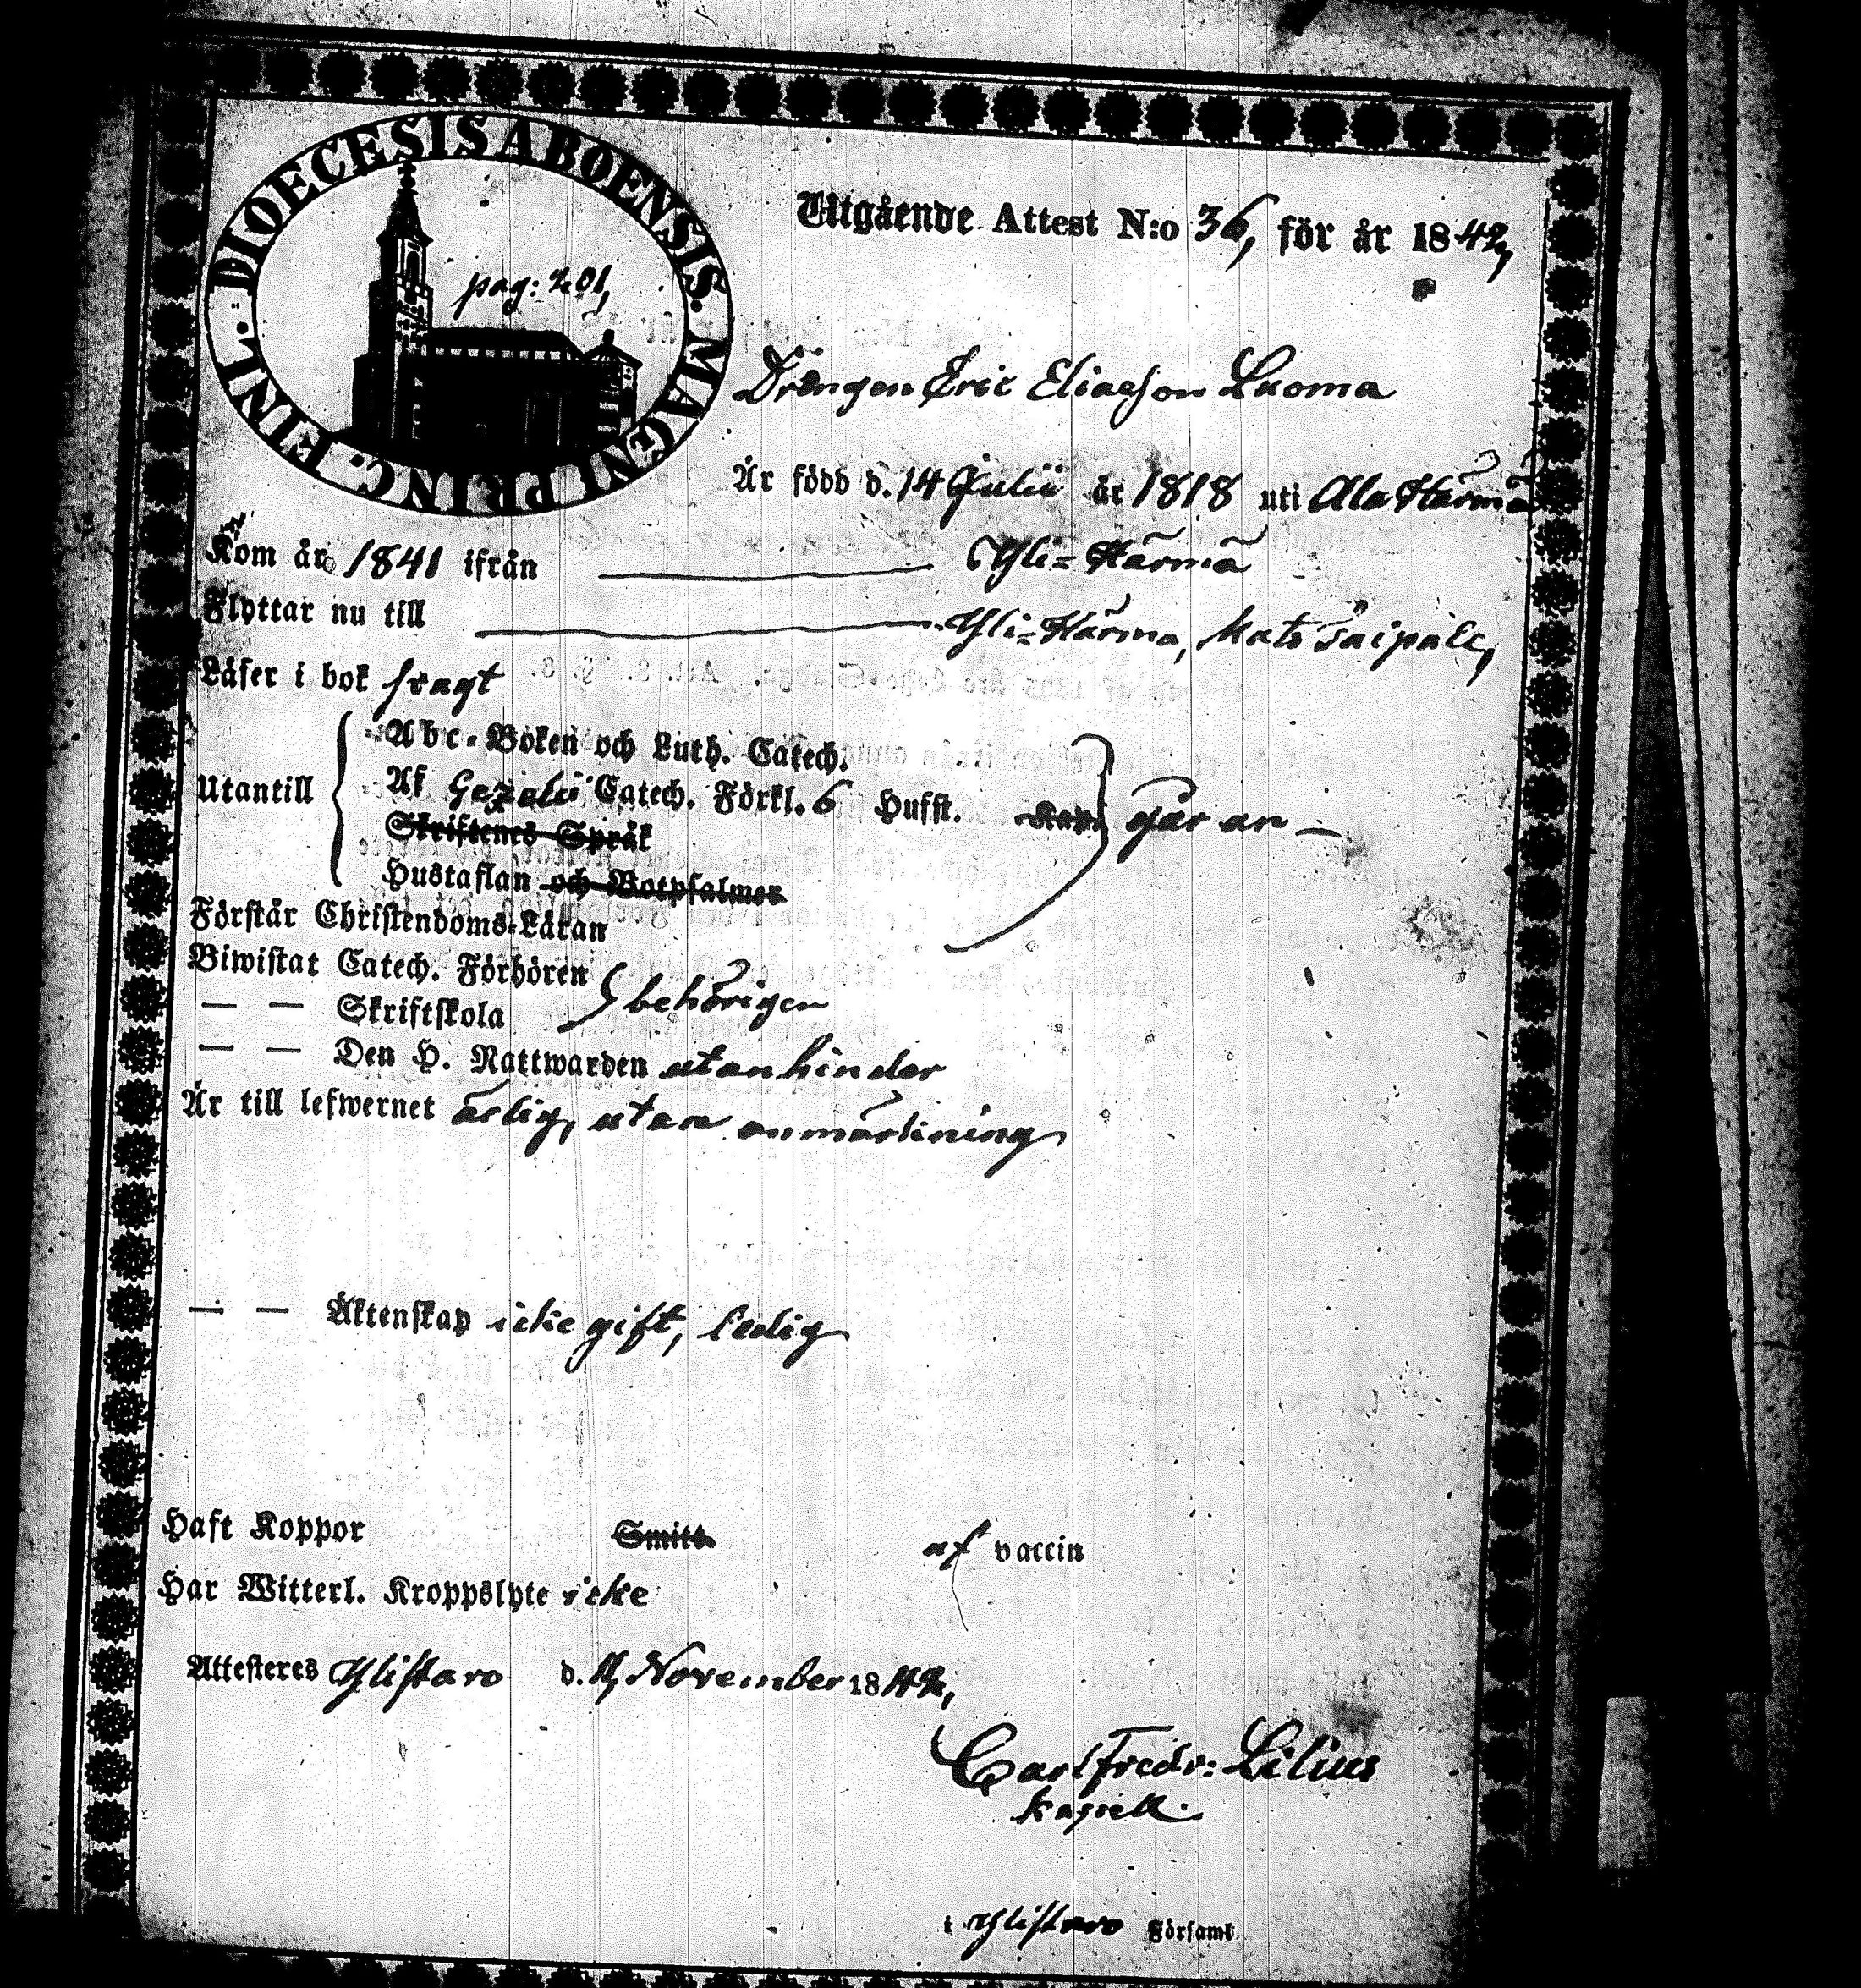 DIOECESIS ABOENSIS. MAGNI PRINC. FINL.
pag: 201,
Utgående Attest N:o 36, för år 1842,
Drängen Eric Eliaeson Luoma
Är född d. 14 Julii år 1818 uti Ala Härmä
Kom år 1841 ifrån Yli=Härmä
Flyttar nu till Yli=Härmä, Mats Saipale,
Läser i bok svagt
Abc-Boken och Luth. Catech.
Utantill Af Gezelii Catech. Förkl. 6 Hufst. Kap. går an
Skriftenes Språk
Hustaflan och Botpsalmer
Förstår Christendoms-Läran
Biwistat Catech. Förhören
— — Skriftskola behörigen
— — Den H. Nattwarden utan hinder
Är till lefwernet ärlig, utan anmärkning
— — Äktenskap icke gift, ledig
Haft Koppor Smitt. af vaccin
Har Witterl. Kroppslyte icke
Attesteres Ylistaro d. November 1842,
Carl Fredr: Lilius
Kapell.
i Ylistaro Församl.